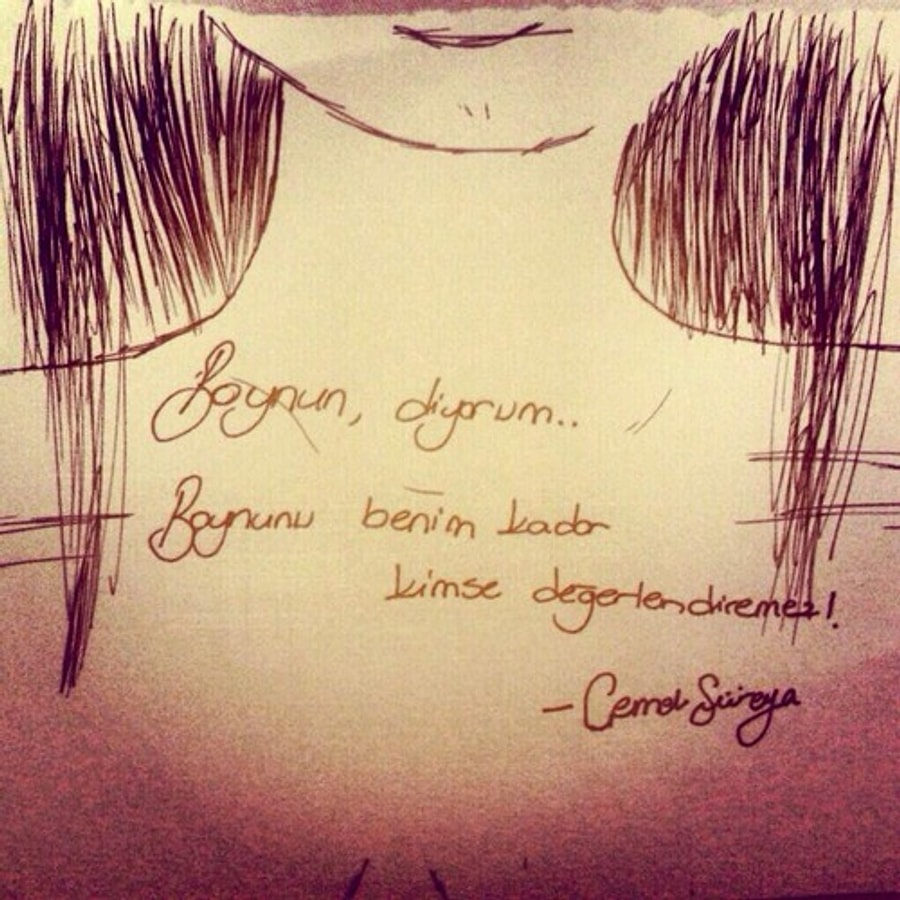 Boynun, diyorum..
Boynunu benim kadar
kimse değerlendiremez!
- Cemal Süreya